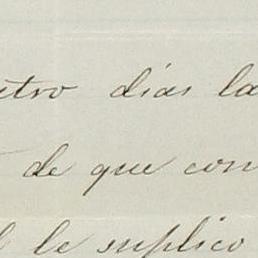 días la
de que con
le suplico